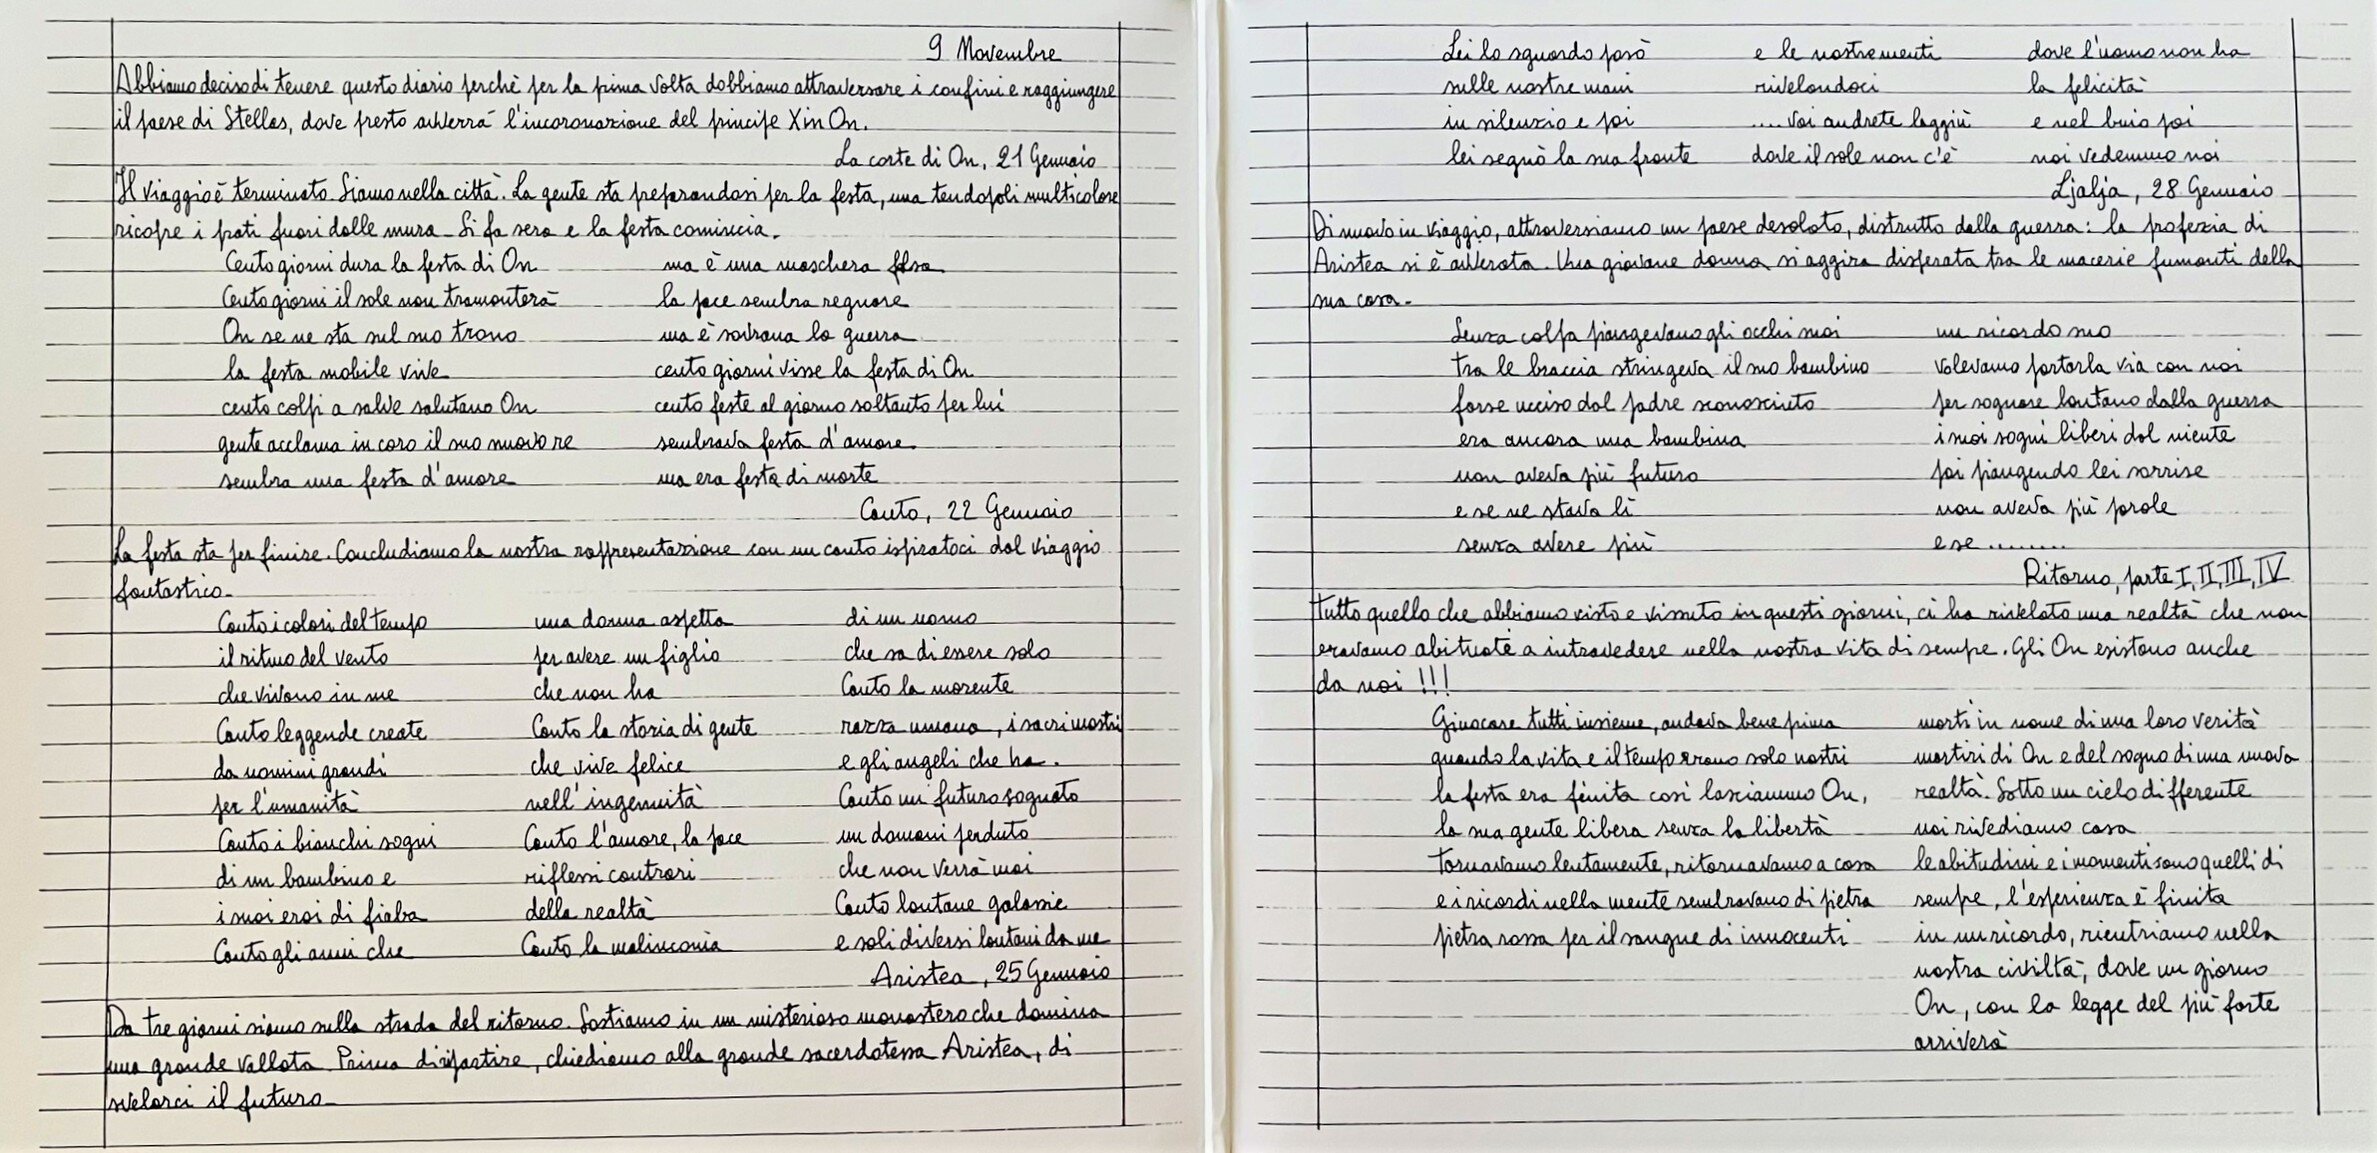 9 Novembre
Abbiamo deciso di tenere questo diario perchè per la prima volta dobbiamo attraversare i confini e raggiungere
il paese di Stellas, dove presto avverrà l'incoronazione del principe Xin On.
La corte di On, 21 Gennaio
Il viaggio è terminato. Siamo nella città. La gente sta preparandosi per la festa, una tendopoli multicolore
ricopre i prati fuori dalle mura. Si fa sera e la festa comincia.
Cento giorni dura la festa di On
Cento giorni il sole non tramonterà
On se ne sta sul suo trono
la festa mobile vive
cento colpi a salve salutano On
gente acclama in coro il suo nuovo re
sembra una festa d'amore
ma è una maschera falsa
la pace sembra regnare
ma è sovrana la guerra
cento giorni visse la festa di On
cento feste al giorno soltanto per lui
sembrava festa d'amore
ma era festa di morte
Canto, 22 Gennaio
La festa sta per finire. Concludiamo la nostra rappresentazione con un canto ispiratoci dal viaggio
fantastico.
Canto i colori del tempo
il ritmo del vento
che vivono in me
Canto leggende create
da uomini grandi
per l'umanità
Canto i bianchi sogni
di un bambino e
i suoi eroi di fiaba
Canto gli anni che
una donna aspetta
per avere un figlio
che non ha
Canto la storia di gente
che vive felice
nell'ingenuità
Canto l'amore, la pace
riflessi contrari
della realtà
Canto la malinconia
di un uomo
che sa di essere solo
Canto la morente
razza umana, i sacri mostri
e gli angeli che ha.
Canto un futuro sognato
un domani perduto
che non verrà mai
Canto lontane galassie
e soli diversi lontani da me
Aristea, 25 Gennaio
Da tre giorni siamo sulla strada del ritorno. Sostiamo in un misterioso monastero che domina
una grande vallata. Prima di ripartire, chiediamo alla grande sacerdotessa Aristea, di
svelarci il futuro
Lei lo sguardo posò
sulle nostre mani
in silenzio e poi
lei segnò la sua fronte
e le nostre menti
rivelandoci
.... voi andrete laggiù
dove il sole non c'è
dove l'uomo non ha
la felicità
e nel buio poi
noi vedemmo noi
Ljalja, 28 Gennaio
Di nuovo in viaggio, attraversiamo un paese desolato, distrutto dalla guerra: la profezia di
Aristea si è avverata. Una giovane donna si aggira disperata tra le macerie fumanti della
sua casa.
Senza colpa piangevano gli occhi suoi
tra le braccia stringeva il suo bambino
forse ucciso dal padre sconosciuto
era ancora una bambina
non aveva più futuro
e se ne stava lì
senza avere più
un ricordo suo
volevamo portarla via con noi
per sognare lontano dalla guerra
i suoi sogni liberi dal niente
poi piangendo lei sorrise
non aveva più parole
e se ..........
Ritorno, parte I, II, III, IV
Tutto quello che abbiamo visto e vissuto in questi giorni, ci ha rivelato una realtà che non
eravamo abituati a intravedere nella nostra vita di sempre. Gli On esistono anche
da noi !!!
Giuocare tutti insieme, andava bene prima
quando la vita e il tempo erano solo nostri
la festa era finita così lasciammo On,
la sua gente libera senza la libertà
tornavamo lentamente, ritornavamo a casa
e i ricordi nella mente sembravano di pietra
pietra rossa per il sangue di innocenti
morti in nome di una loro verità
martiri di On e del sogno di una nuova
realtà. Sotto un cielo differente
noi rivediamo casa
le abitudini e i momenti sono quelli di
sempre, l'esperienza è finita
in un ricordo, rientriamo nella
nostra civiltà, dove un giorno
On, con la legge del più forte
arriverà